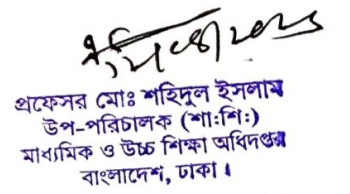 প্রফেসর মোঃ শহিদুল ইসলাম
উপ-পরিচালক (শা:শি:)
মাধ্যমিক ও উচ্চ শিক্ষা অধিদপ্তর
বাংলাদেশ, ঢাকা।